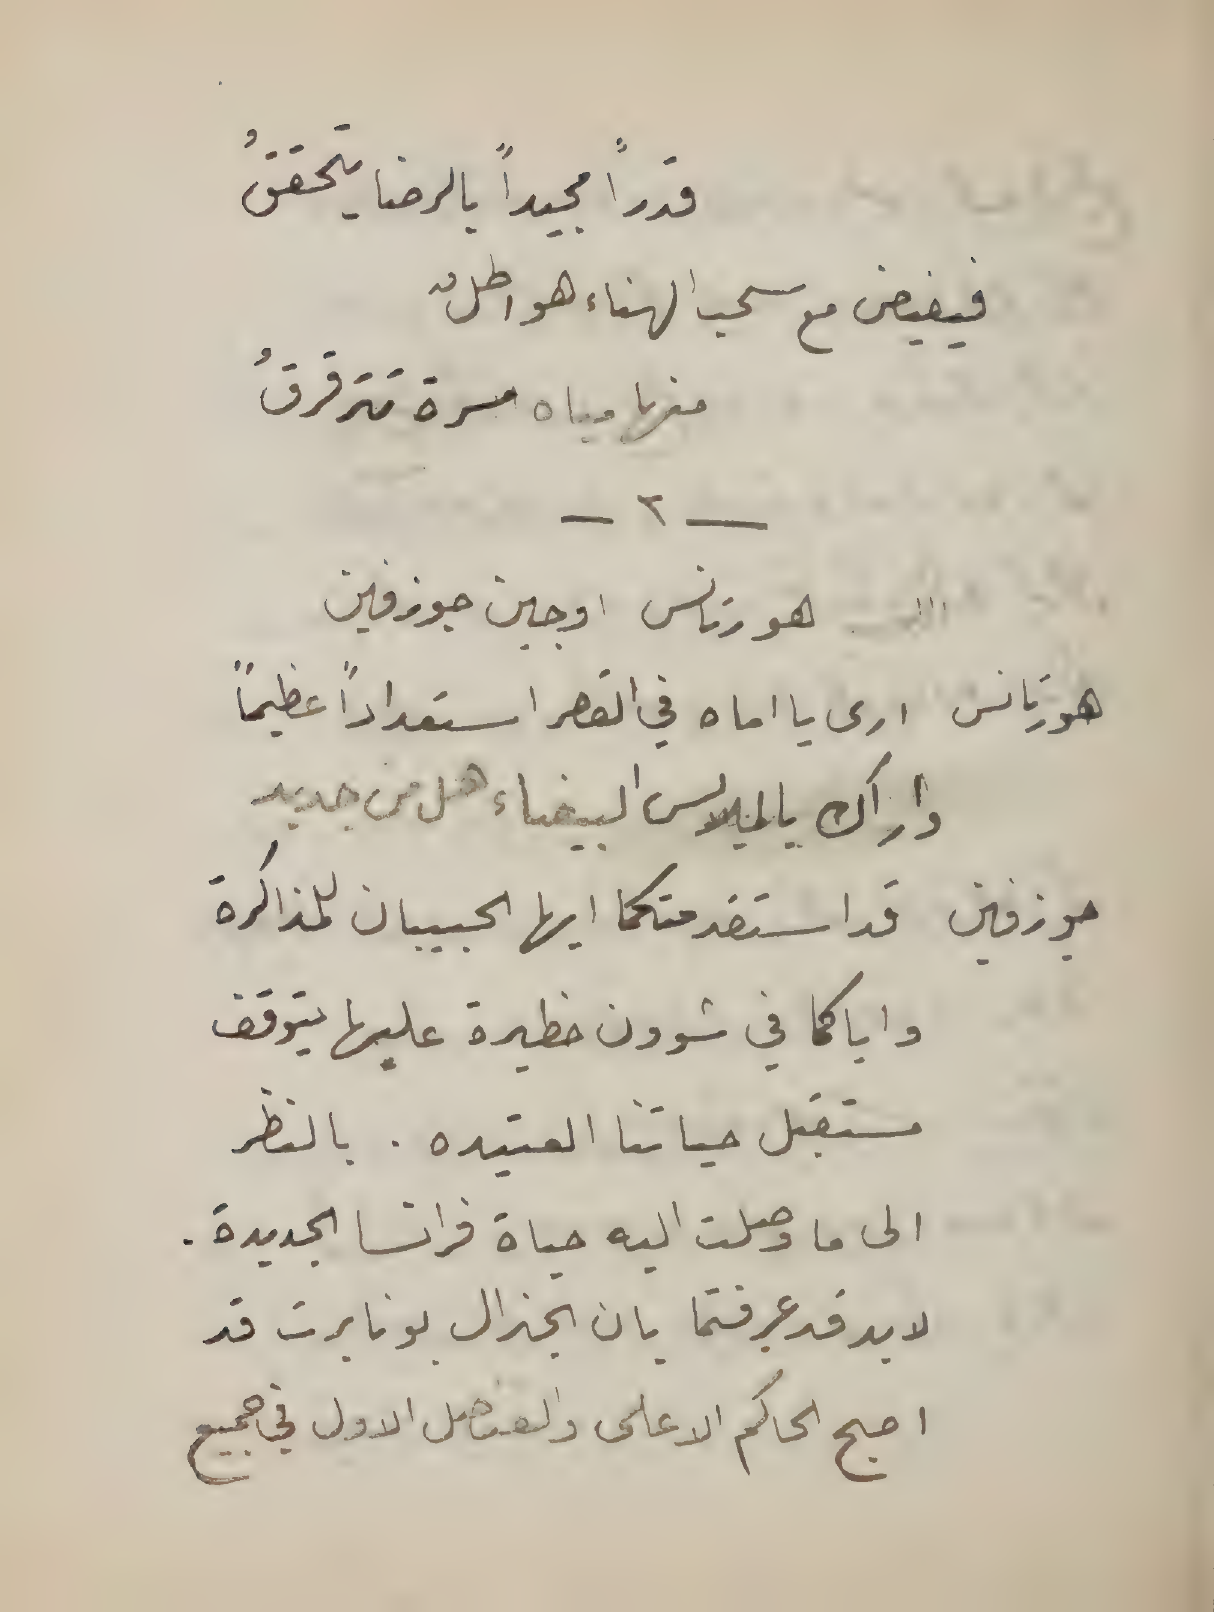 قدراً مجيداً بالرضا يتحققُ
فيفيض مع سحب الهناء هواطلٌ
منها مياه مسرة تترقرقُ
— ٢ —
هورتانس اوجين جوزفين
هورتانس ارى يا اماه في القصر استعداداً عظيماً
واراك بالملابس البيضاء هل من جديد
جوزفين قد استقدمتكما ايها الحبيبان للمذاكرة
واياكما في شوون خطيرة عليها يتوقف
مستقبل حياتنا العتيده . بالنظر
الى ما وصلت اليه حياة فرانسا الجديدة .
لابد قد عرفتما بان الجنرال بونابرت قد
اصبح الحاكم الاعلى والعاهل الاول في جميع